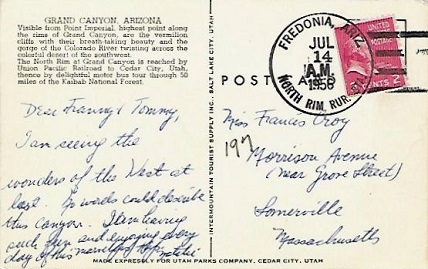 GRAND CANYON, ARIZONA
Visible from Point Imperial, highest point along
the rims of Grand Canyon, are the vermilion
cliffs with their breath-taking beauty and the
gorge of the Colorado River twisting across the
colorful desert of the southwest.
The North Rim at Grand Canyon is reached by
Union Pacific Railroad to Cedar City, Utah,
thence by delightful motor bus tour through 50
miles of the Kaibab National Forest.
Dear Franny & Tommy,
I am seeing the
wonders of the West at
last. No words could describe
this Canyon. I am having
such fun and enjoying every
day of this marvelous trip.
INTERMOUNTAIN TOURIST SUPPLY INC., SALT LAKE CITY, UTAH
POST
FREDONIA, ARIZ.
JUL
14
A.M.
1958
NORTH RIM, RUR. STA.
CENTS 2
Miss Francis Croy
197
Morrison Avenue
(Near Grove Street)
Somerville
Massachusetts
MADE EXPRESSLY FOR UTAH PARKS COMPANY, CEDAR CITY, UTAH